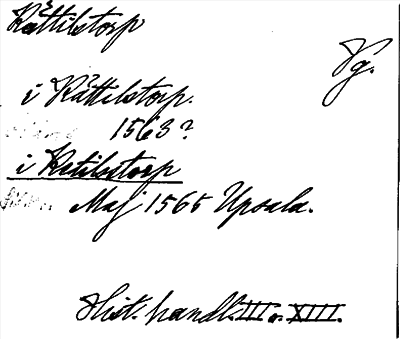 Kättilstorp
Vg.
i Kättelstorp.
1563?
i Ketilstorp
Maj 1565 Upsala.
Hist. handl. III o. XIII.